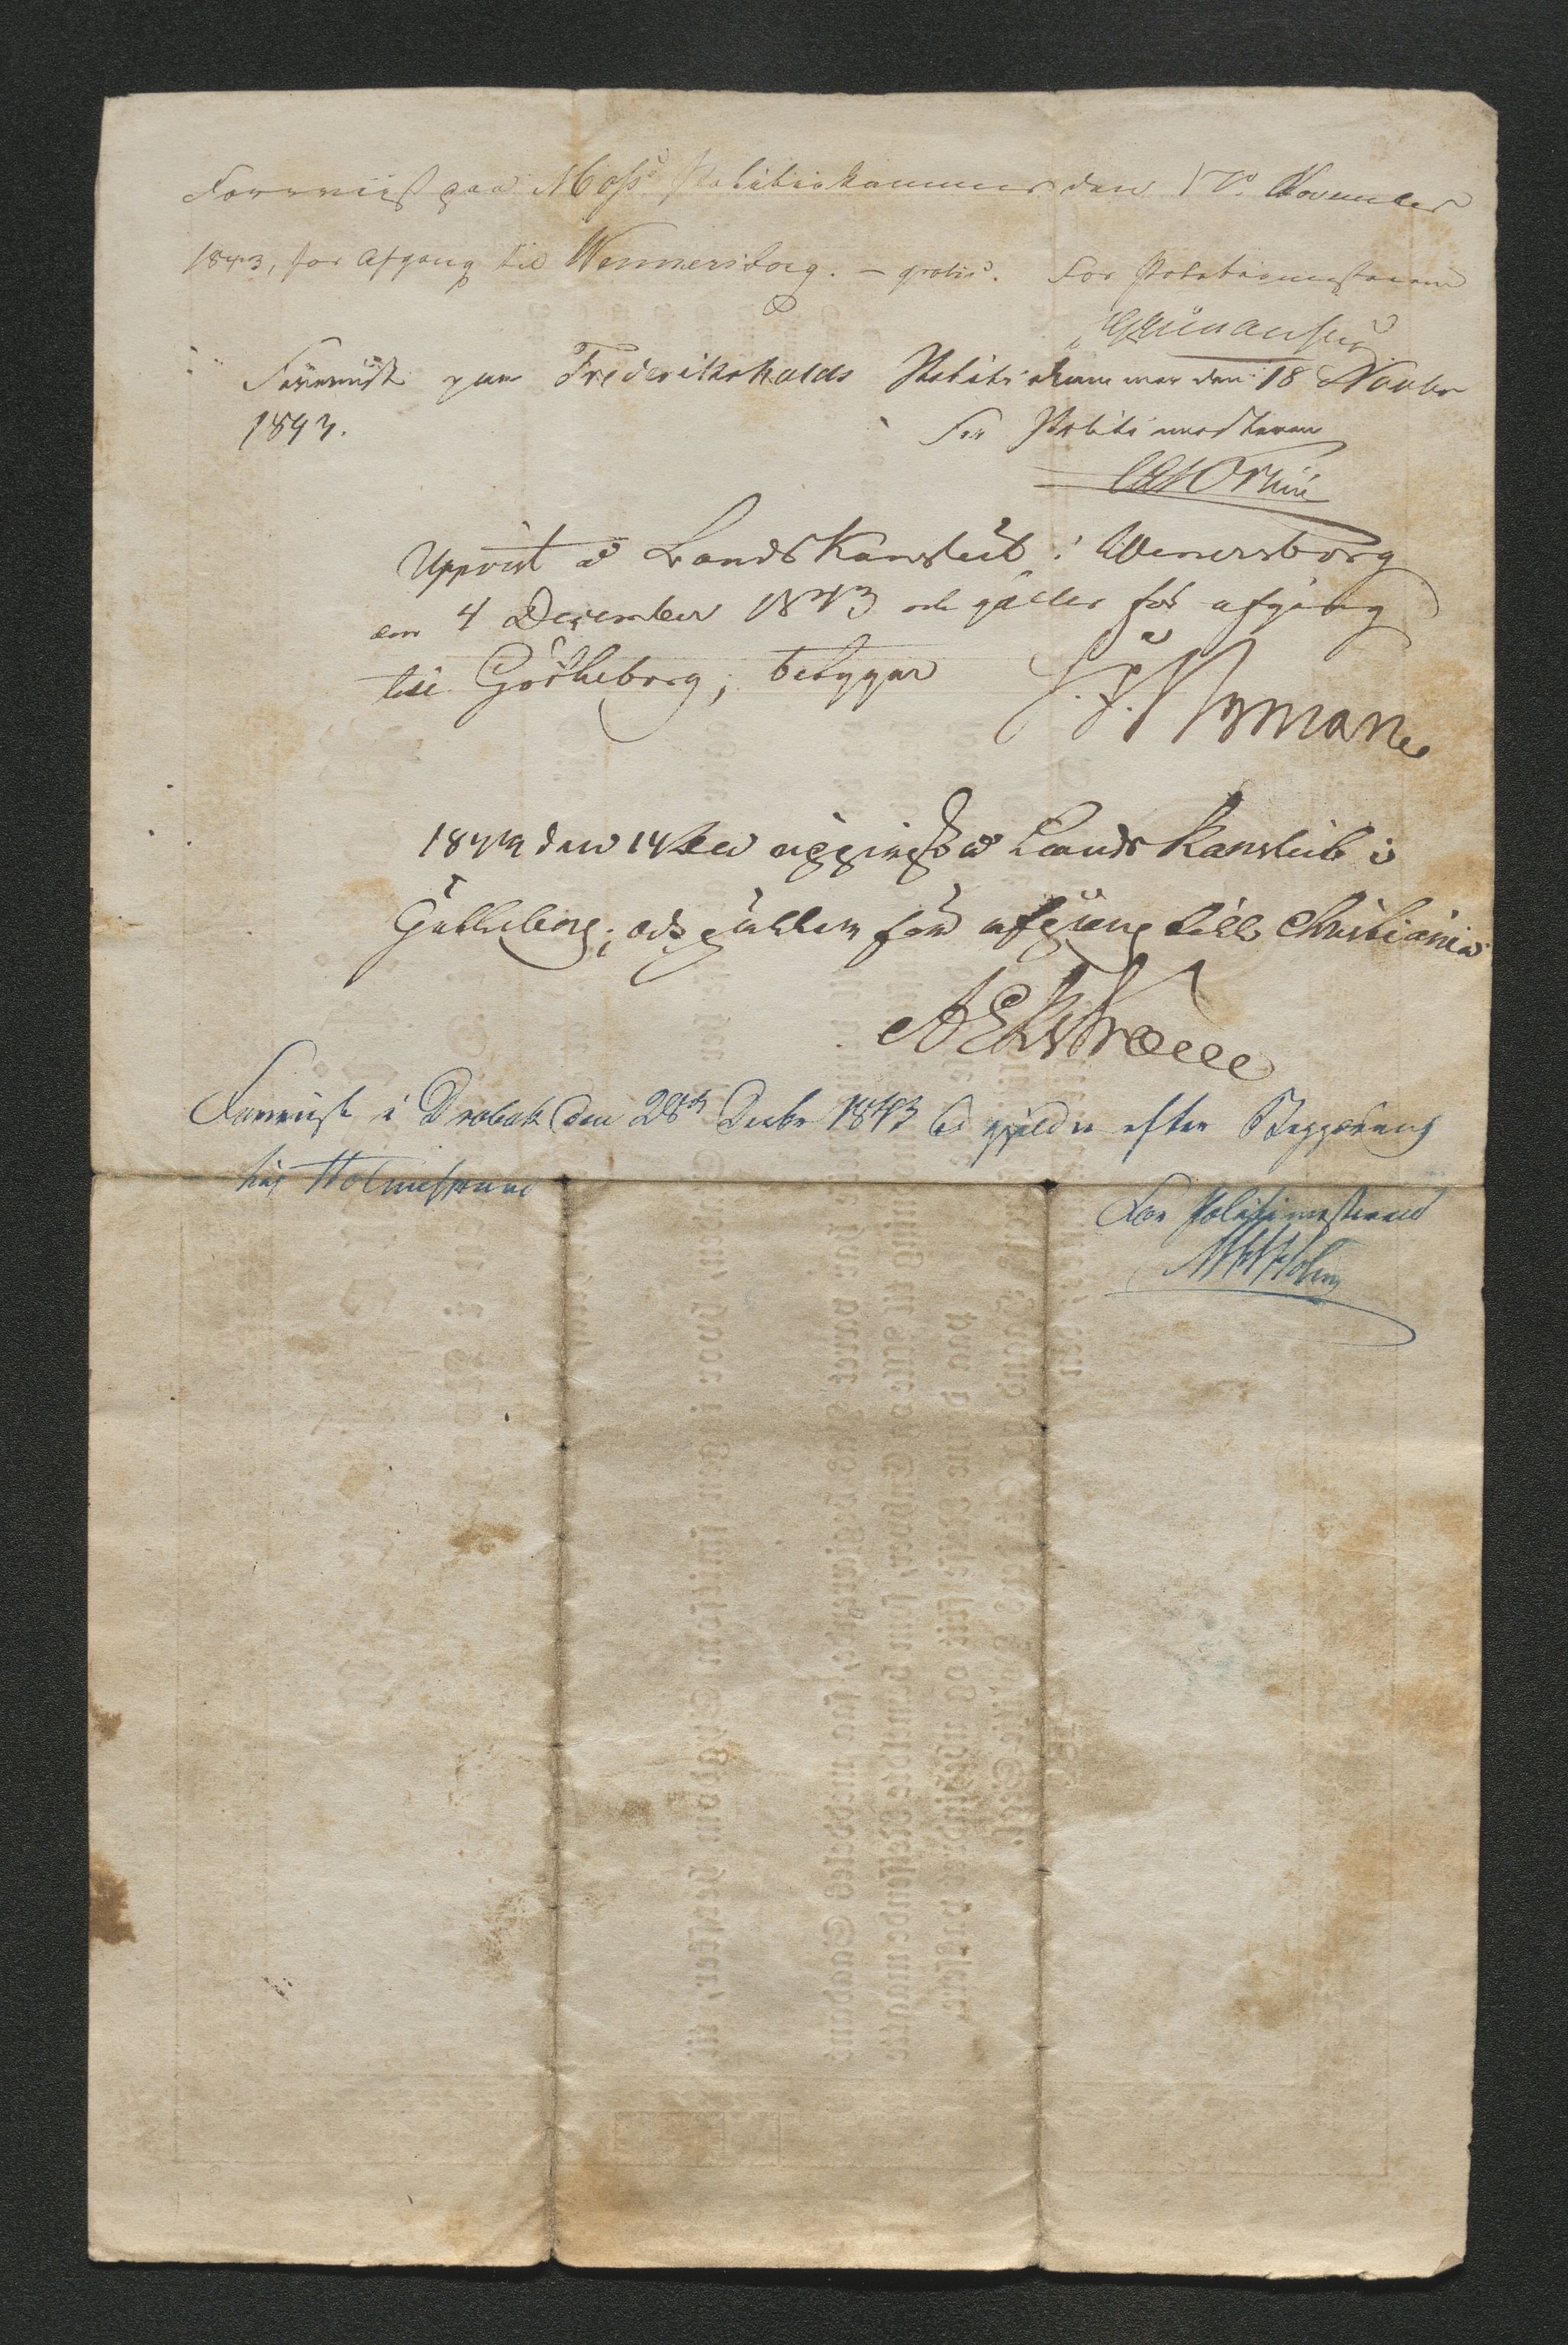 Foreviist paa Moss Politiekammer den 17de November
1843, for Afgang til Wennersborg. – gratis. For Politiemesteren
Foreviist paa Frederikshalds Politikammer den 18 Novbr
1843. For Politimesteren
Uppvist å LandsKansliet i Wenersborg
den 4 December 1843 och gäller för afgång
till Götheborg; betygar
J. F. Nyman
1843 den 14 Dec uppvist å Lands Kansliet i
Götheborg; och gäller för afgång till Christiania
A Ekström
Foreviist i Drøbak den 28de Decbr 1843 og gjelder efter Begjæring
til Holmestrand
For Politimesteren
Holm